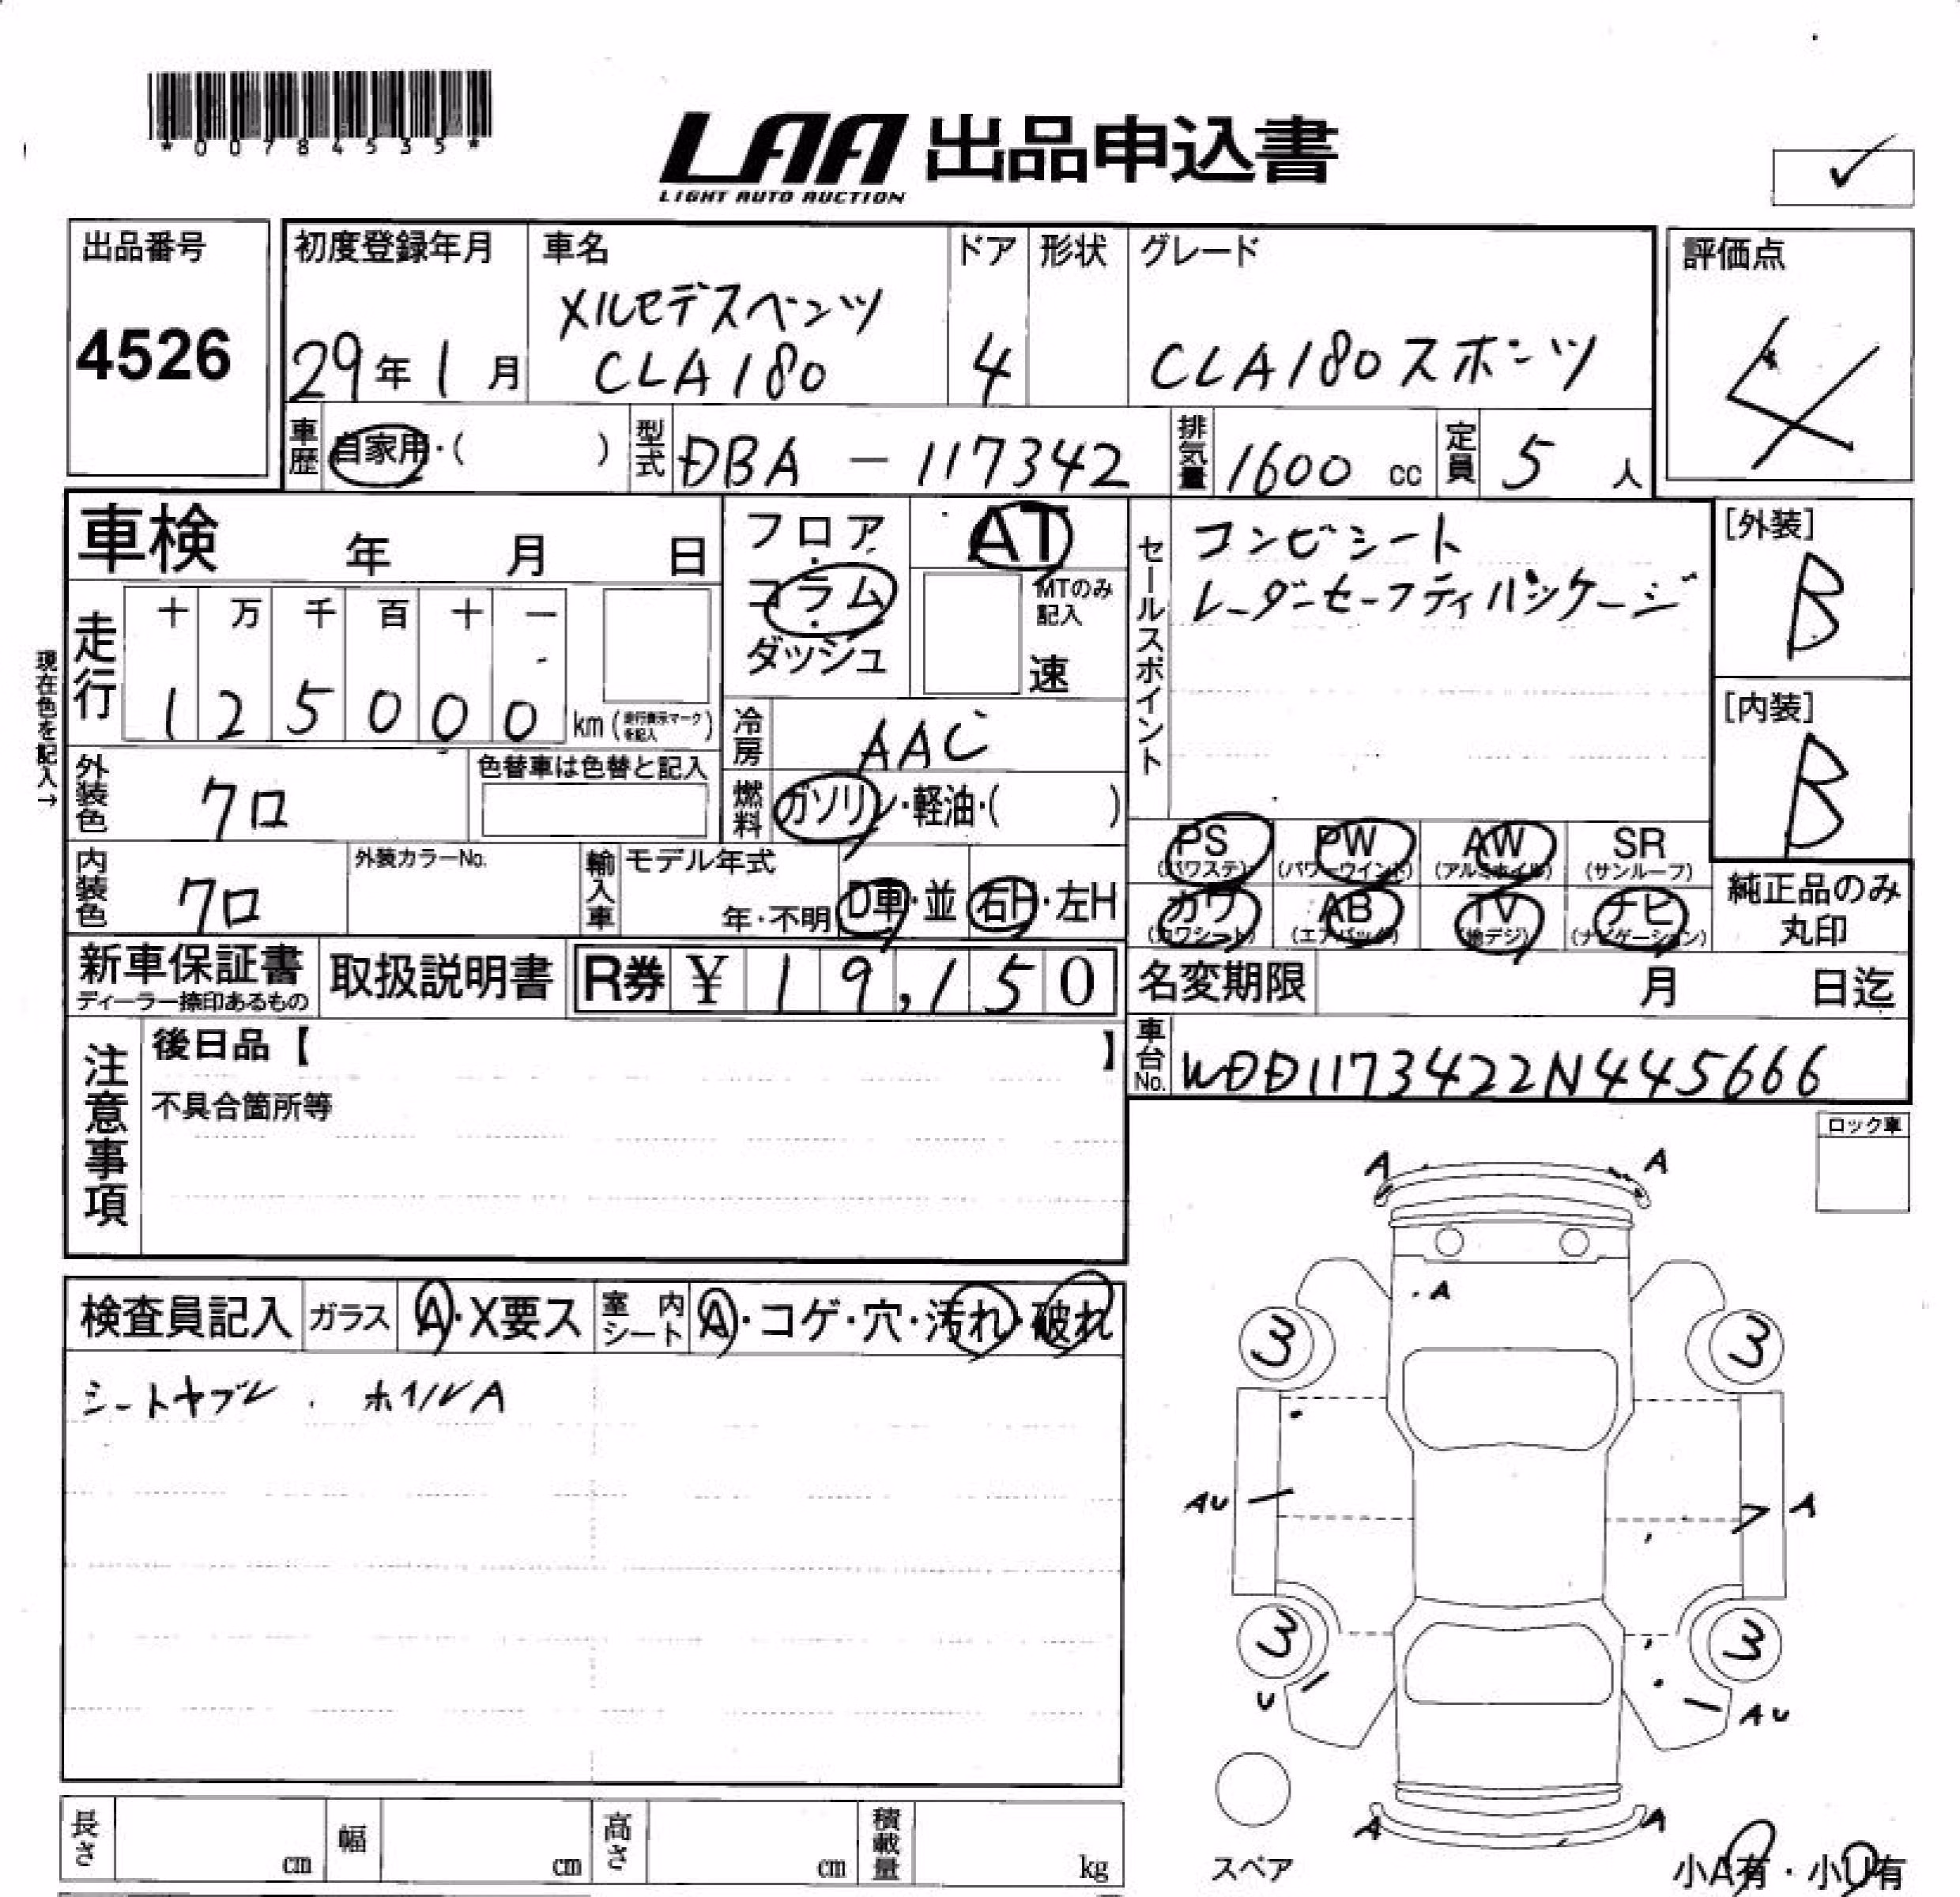 *00784535*
LAA 出品申込書
LIGHT AUTO AUCTION
✓
出品番号
4526
初度登録年月
29年1月
車名
メルセデスベンツ
CLA180
ドア
4
形状
グレード
CLA180スポーツ
評価点
4
車歴
自家用・( )
型式
DBA - 117342
排気量
1600 cc
定員
5 人
車検 年 月 日
フロア・コラム・ダッシュ
AT
MTのみ記入
速
セールスポイント
コンビシート
レーダーセーフティパッケージ
[外装]
B
[内装]
B
現在色を記入→
走行
十 万 千 百 十 一
1 2 5 0 0 0 km (走行表示マークを記入)
冷房
AAC
外装色
クロ
色替車は色替と記入
燃料
ガソリン・軽油・( )
内装色
クロ
外装カラーNo.
輸入車
モデル年式
年・不明
D車・並
右H・左H
PS (パワステ)
PW (パワーウインド)
AW (アルミホイル)
SR (サンルーフ)
カワ (カワシート)
AB (エアバッグ)
TV (地デジ)
ナビ (ナビゲーション)
純正品のみ丸印
新車保証書
ディーラー捺印あるもの
取扱説明書
R券 ¥ 19,150
名変期限 月 日迄
車台No.
WDD1173422N445666
注意事項
後日品【 】
不具合箇所等
ロック車
検査員記入
ガラス
A・X要ス
室内シート
A・コゲ・穴・汚れ・破れ
シートヤブレ . ホイルA
A
A
A
3
3
AU
A
3
3
U
AU
A
A
スペア
小A有・小U有
長さ cm
幅 cm
高さ cm
積載量 kg